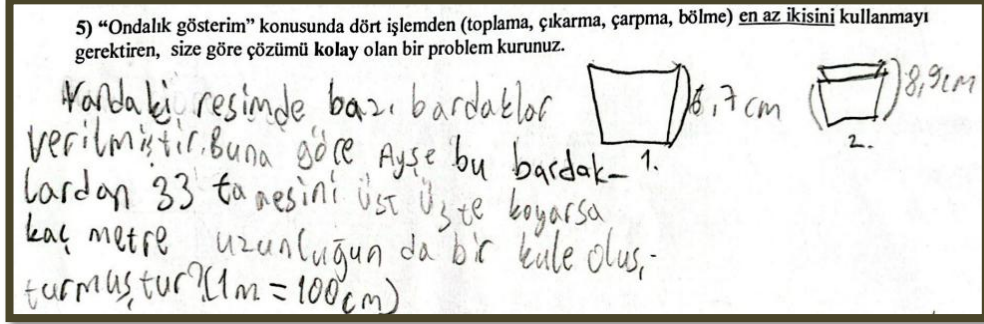 5) “Ondalık gösterim” konusunda dört işlemden (toplama, çıkarma, çarpma, bölme) en az ikisini kullanmayı
gerektiren, size göre çözümü kolay olan bir problem kurunuz.
Yandaki resimde bazı bardaklar
verilmiştir. Buna göre Ayşe bu bardak-
lardan 33 tanesini üst üste koyarsa
kaç metre uzunluğun da bir kule oluş-
turmuştur? (1m = 100cm)
6,7 cm
1.
8,9cm
2.